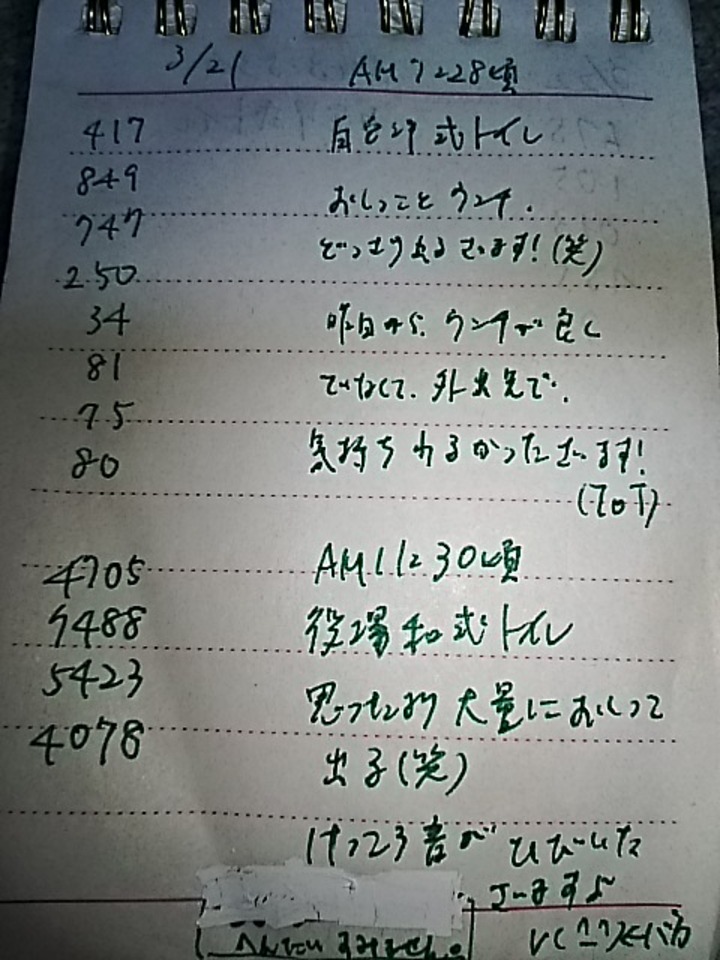 3/21 AM7:28頃
417 自宅洋式トイレ
849
おしっことウンチ.
747
どっさり出るざます!(笑)
250
34 昨日から、ウンチが良く
81
でなくて、外出先で、
75
80 気持ちわるかったざます!
(ToT)
4705 AM11:30頃
7488 役場和式トイレ
5423 思ったより大量におしっこ
4078 出る(笑)
けっこう音がひびいた
ざますよ
へんたいすみません。